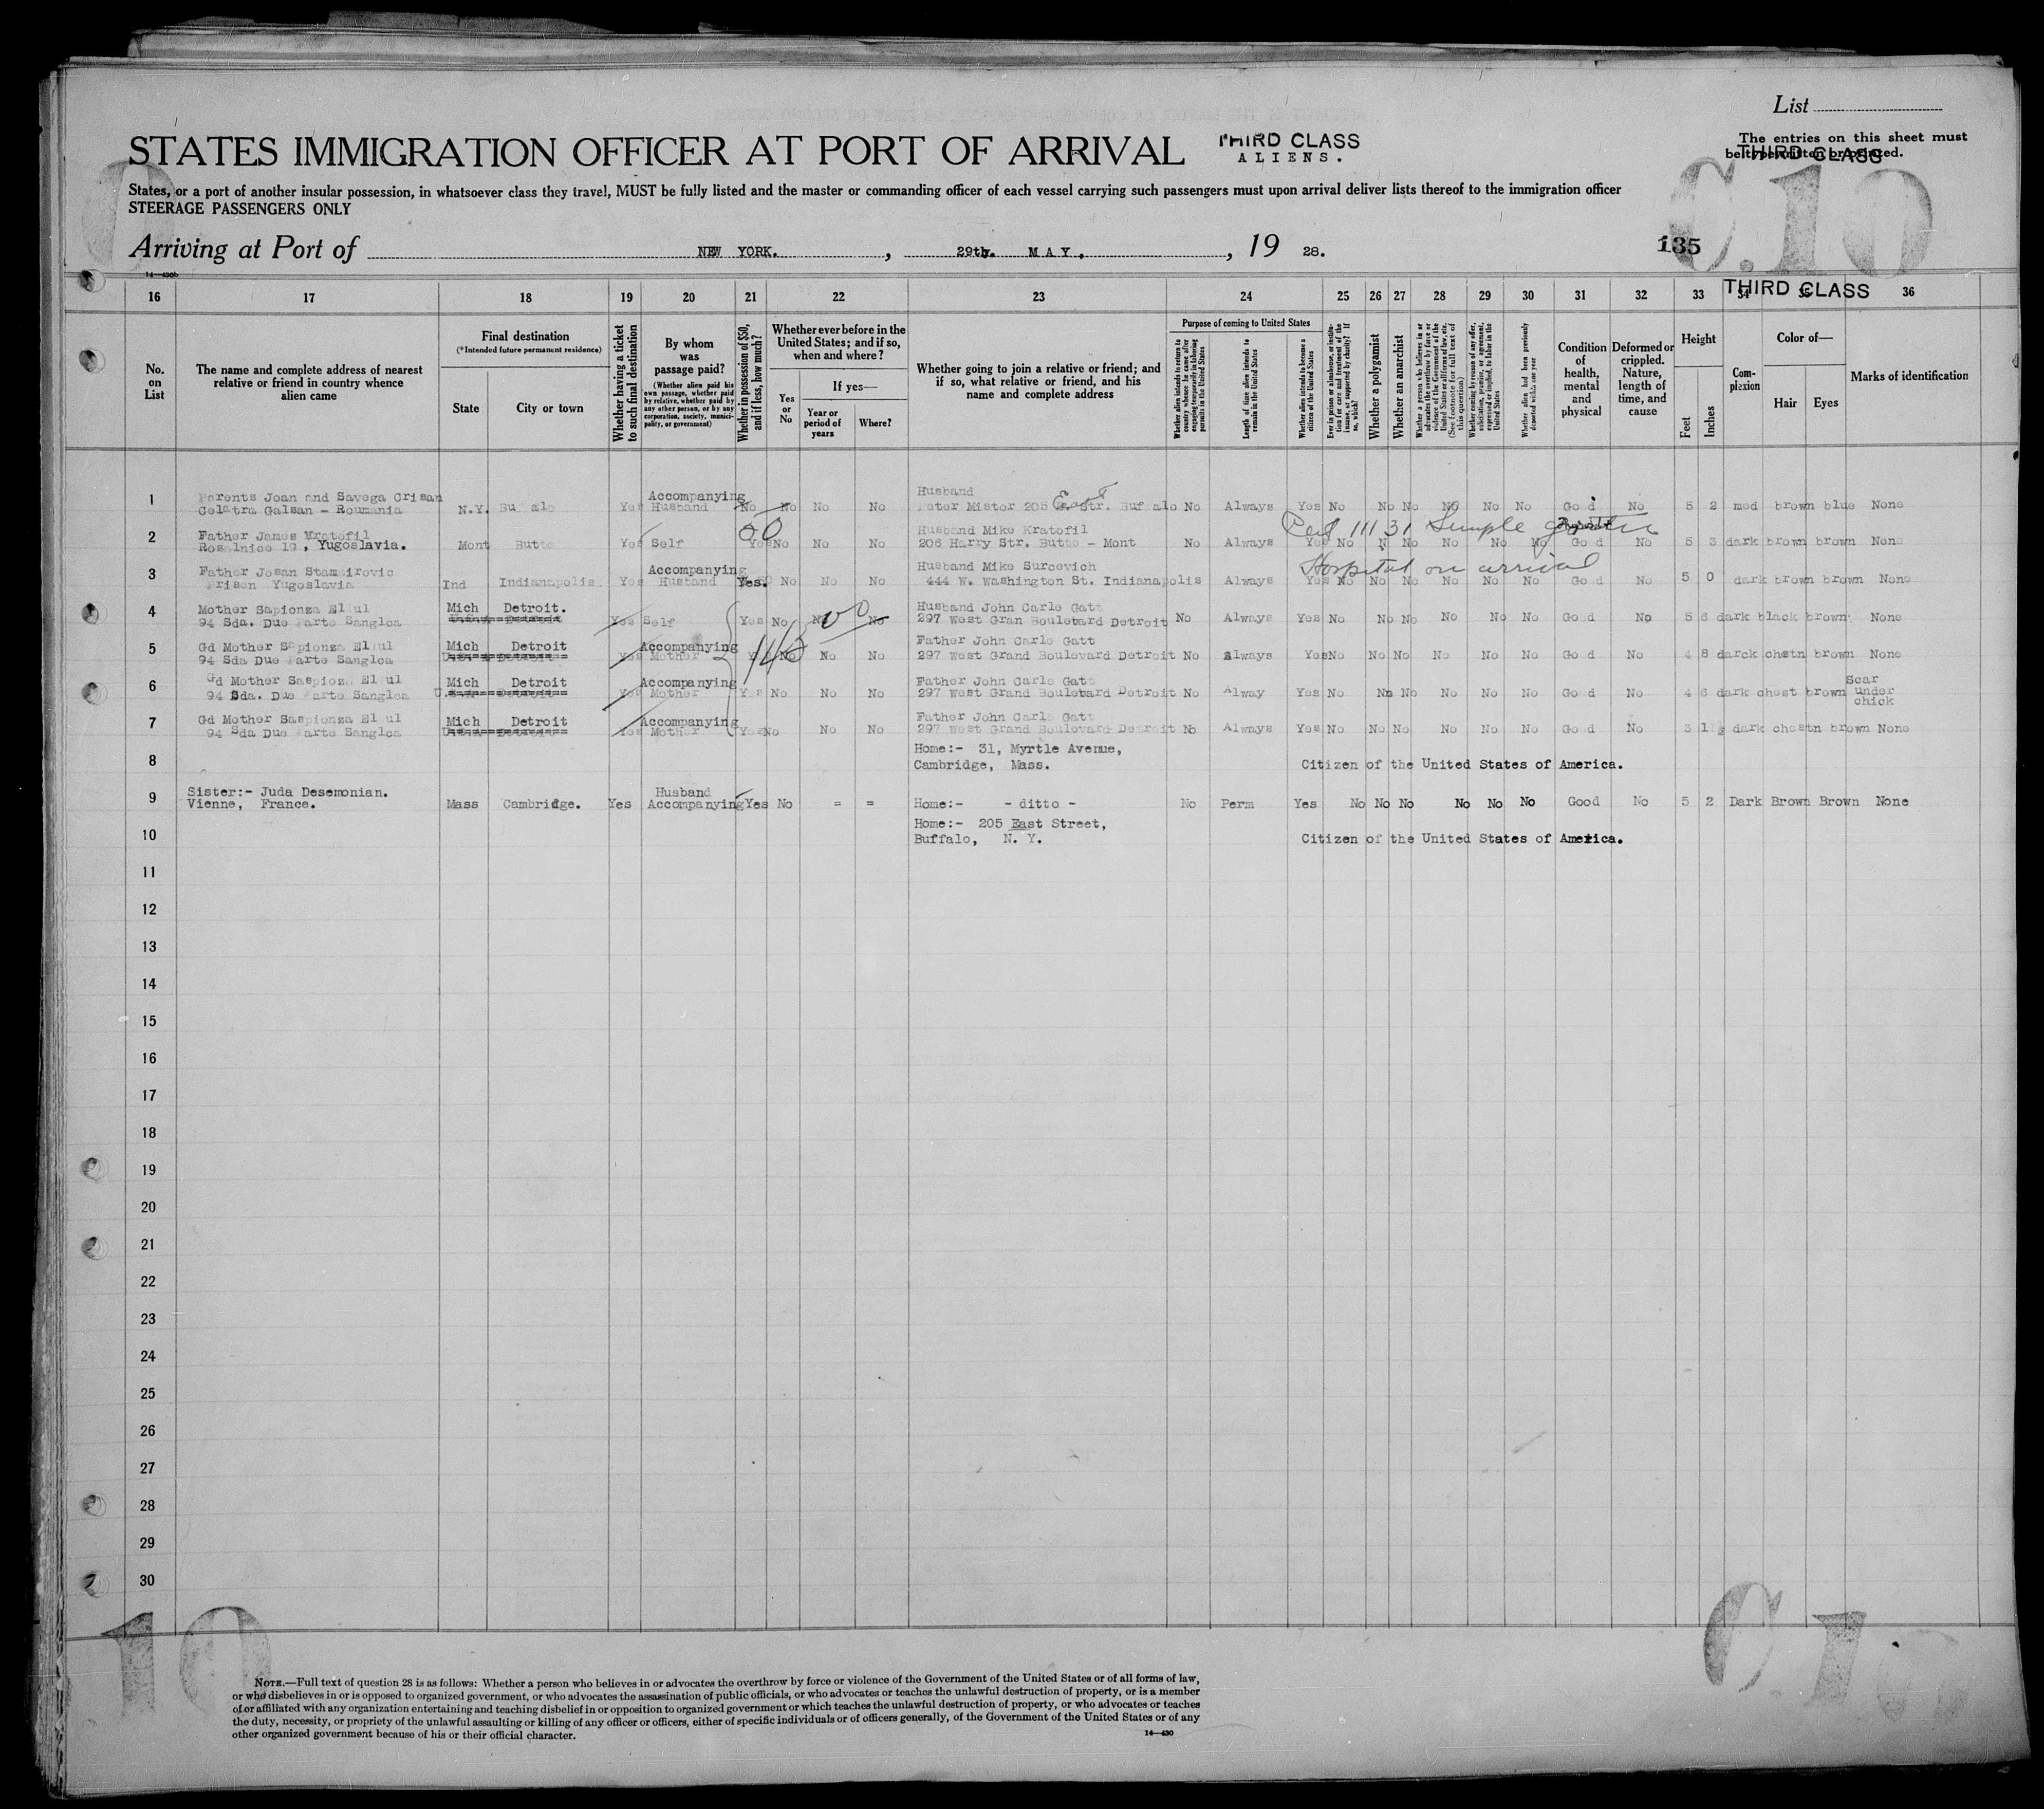 List
STATES IMMIGRATION OFFICER AT PORT OF ARRIVAL
THIRD CLASS
ALIENS.
The entries on this sheet must
be typewritten or printed.
THIRD CLASS
C.10
States, or a port of another insular possession, in whatsoever class they travel, MUST be fully listed and the master or commanding officer of each vessel carrying such passengers must upon arrival deliver lists thereof to the immigration officer
STEERAGE PASSENGERS ONLY
Arriving at Port of NEW YORK. , 29th. MAY. , 19 28.
135
14—430b
16 17 18 19 20 21 22 23 24 25 26 27 28 29 30 31 32 33 34 35 36
THIRD CLASS
No. on List
The name and complete address of nearest relative or friend in country whence alien came
Final destination
(*Intended future permanent residence)
State
City or town
Whether having a ticket to such final destination
By whom was passage paid?
(Whether alien paid his own passage, whether paid by relative, whether paid by any other person, or by any corporation, society, municipality, or government)
Whether in possession of $50, and if less, how much?
Whether ever before in the United States; and if so, when and where?
Yes or No
If yes—
Year or period of years
Where?
Whether going to join a relative or friend; and if so, what relative or friend, and his name and complete address
Purpose of coming to United States
Whether alien intends to return to country whence he came after engaging temporarily in laboring pursuits in the United States
Length of time alien intends to remain in the United States
Whether alien intends to become a citizen of the United States
Ever in prison or almshouse, or institution for care and treatment of the insane, or supported by charity? If so, which?
Whether a polygamist
Whether an anarchist
Whether a person who believes in or advocates the overthrow by force or violence of the Government of the United States or all forms of law, etc. (See footnote for full text of this question)
Whether coming by reason of any offer, solicitation, promise, or agreement, expressed or implied, to labor in the United States
Whether alien had been previously deported within one year
Condition of health, mental and physical
Deformed or crippled. Nature, length of time, and cause
Height
Feet
Inches
Complexion
Color of—
Hair
Eyes
Marks of identification
1 Parents Joan and Savega Crisan Accompanying Husband
Celatra Galsan - Roumania N.Y. Buffalo Yes Husband No No No No Peter Mistor 205 East Str. Buffalo No Always Yes No No No No No No Good No 5 2 med brown blue None
50
Ced 11131 Simple
2 Father James Kratofil Husband Mike Kratofil
Rosalnice 19, Yugoslavia. Mont Butte Yes Self Yes No No No 206 Harry Str. Butte - Mont No Always Yes No No No No No No Good No 5 3 dark brown brown None
Hospital on arrival
3 Father Josan Stamairovic Accompanying Husband Mike Surcevich
Prisen Yugoslavia Ind Indianapolis Yes Husband Yes. No No No 444 W. Washington St. Indianapolis Always Yes No No No No No No Good No 5 0 dark brown brown None
4 Mother Sapionza Ellul Mich Detroit. Husband John Carlo Gatt
94 Sda. Due Parte Sanglea Yes Self Yes No No No 297 West Gran Bouletard Detroit No Always Yes No No No No No No Good No 5 6 dark black brown None
5 Gd Mother Sapionza Ellul Mich Detroit Accompanying Father John Carlo Gatt
94 Sda Due Parte Sanglea Yes Mother Yes No No No 297 West Grand Boulevard Detroit No Always Yes No No No No No No Good No 4 8 darck chstn brown None
6 Gd Mother Saspioza Ellul Mich Detroit Accompanying Father John Carlo Gatt Scar
94 Sda. Due Parte Sanglea Yes Mother Yes No No No 297 West Grand Bouletard Detroit No Alway Yes No No No No No No Good No 4 6 dark chest brown under
chick
7 Gd Mother Saspionza Ellul Mich Detroit Accompanying Father John Carlo Gatt
94 Sda Due Parte Sanglea Yes Mother Yes No No No 297 West Grand Boulevard Detroit No Always Yes No No No No No No Good No 3 dark chestn brown None
8 Home:- 31, Myrtle Avenue,
Cambridge, Mass. Citizen of the United States of America.
9 Sister:- Juda Desemonian. Husband
Vienne, France. Mass Cambridge. Yes Accompanying Yes No = = Home:- - ditto - No Perm Yes No No No No No No Good No 5 2 Dark Brown Brown None
10 Home:- 205 East Street,
Buffalo, N. Y. Citizen of the United States of America.
11
12
13
14
15
16
17
18
19
20
21
22
23
24
25
26
27
28
29
30
10
C1
NOTE.—Full text of question 28 is as follows: Whether a person who believes in or advocates the overthrow by force or violence of the Government of the United States or of all forms of law,
or who disbelieves in or is opposed to organized government, or who advocates the assassination of public officials, or who advocates or teaches the unlawful destruction of property, or is a member
of or affiliated with any organization entertaining and teaching disbelief in or opposition to organized government or which teaches the unlawful destruction of property, or who advocates or teaches
the duty, necessity, or propriety of the unlawful assaulting or killing of any officer or officers, either of specific individuals or of officers generally, of the Government of the United States or of any
other organized government because of his or their official character.
14—430